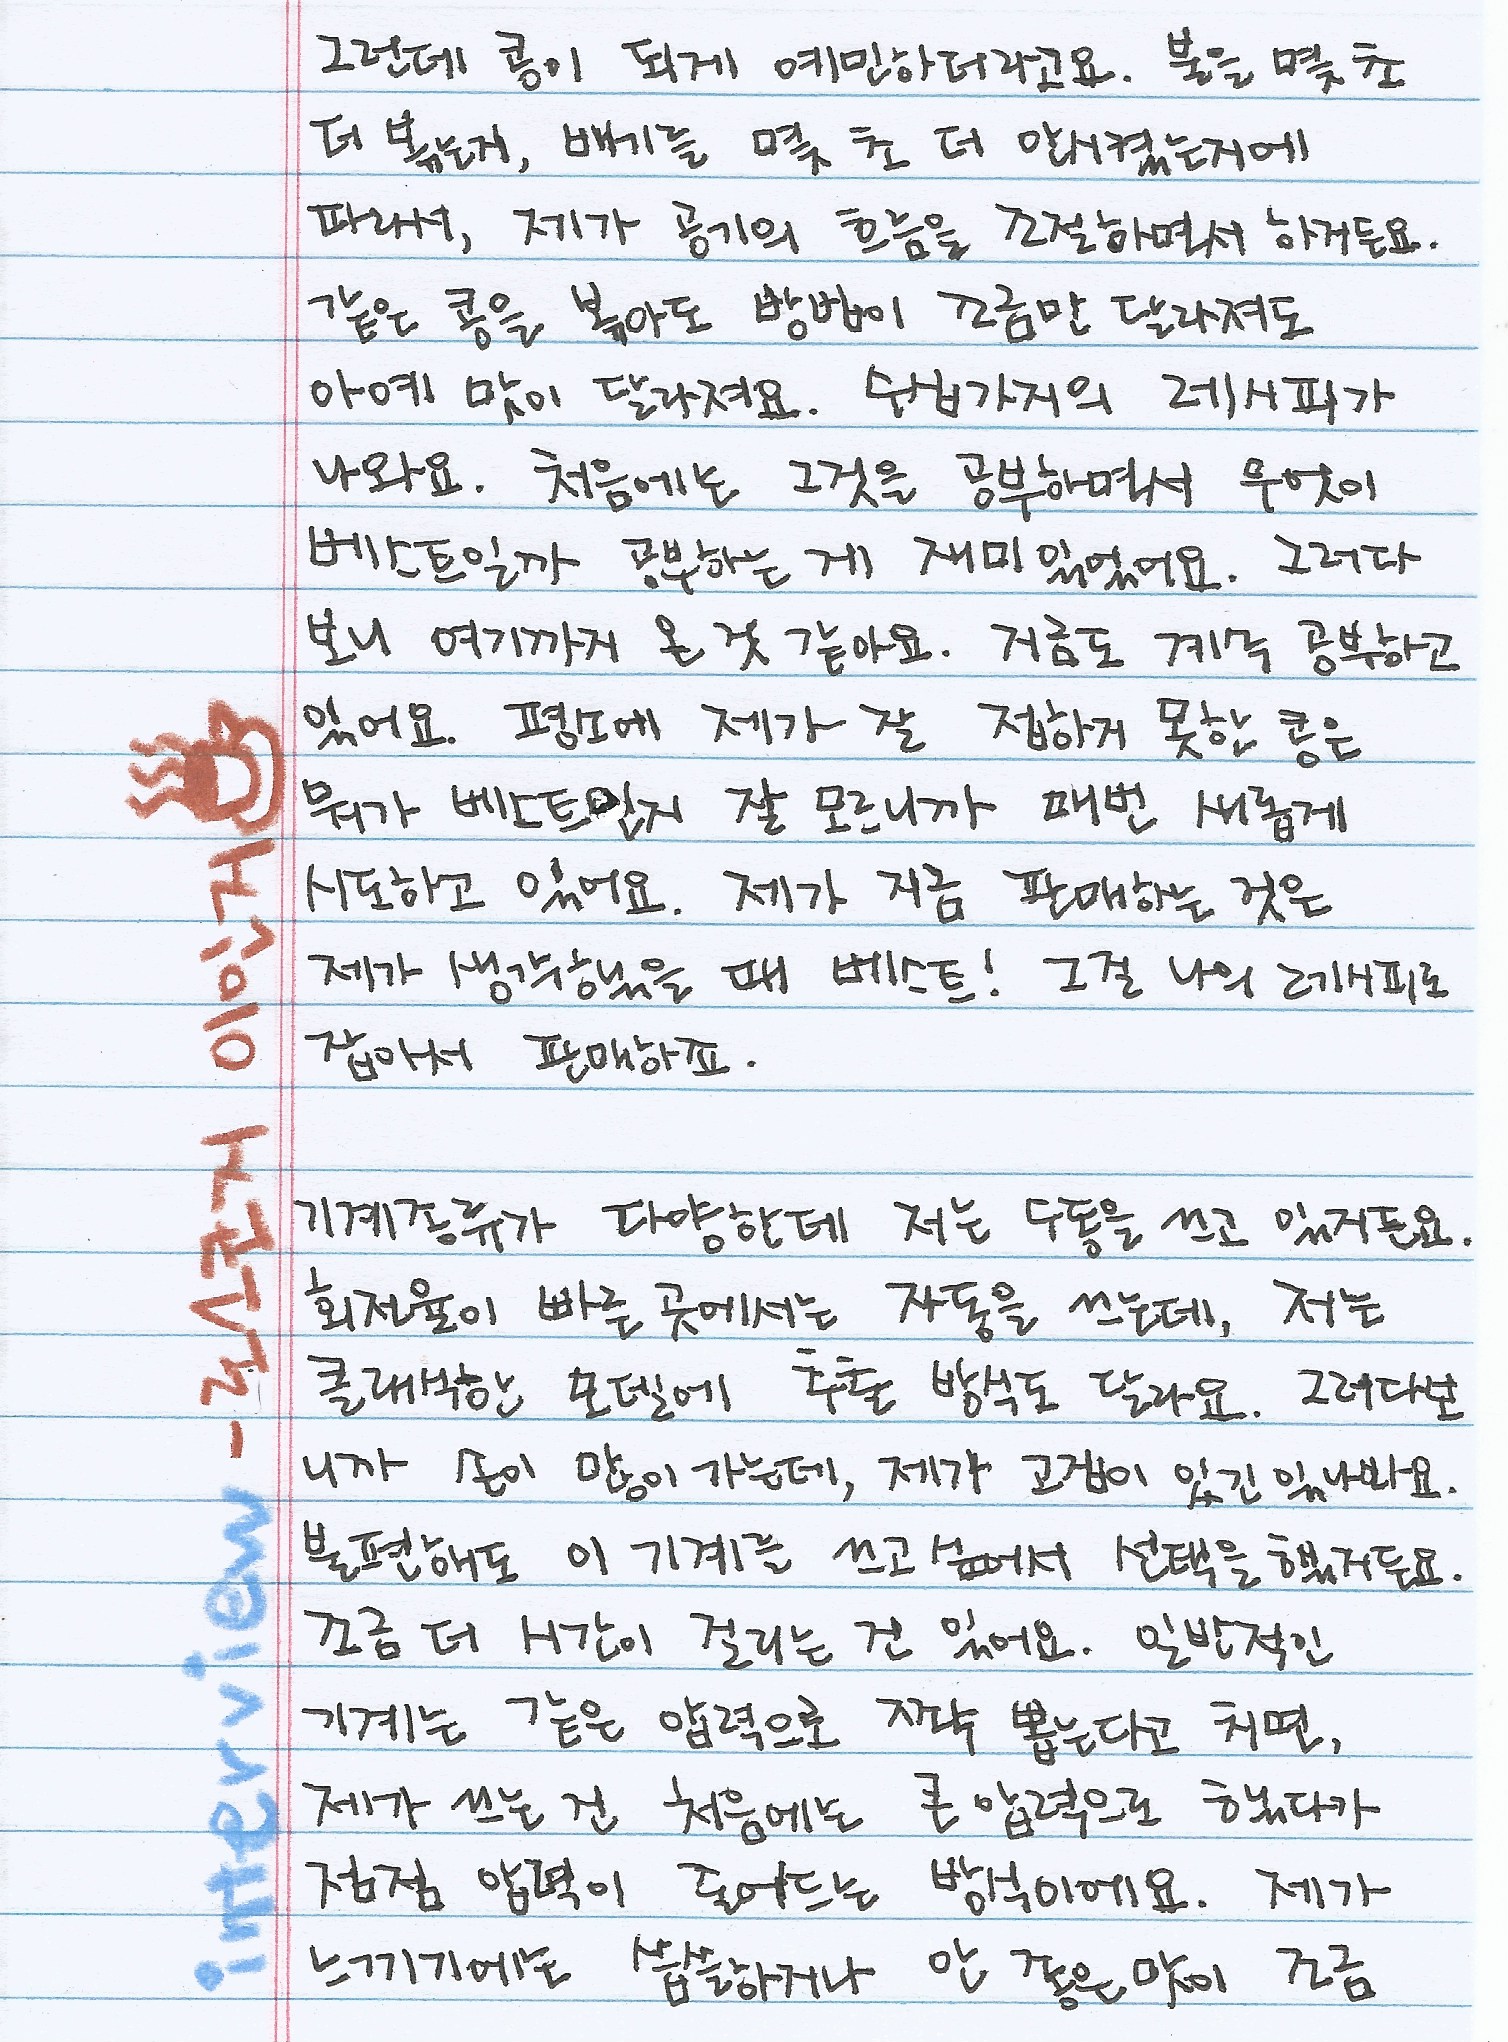 그런데 콩이 되게 예민하더라고요. 불을 몇 초
더 볶는지, 배기를 몇 초 더 안시켰는지에
따라서, 제가 공기의 흐름을 조절하면서 하거든요.
같은 콩을 볶아도 방법이 조금만 달라져도
아예 맛이 달라져요. 수십가지의 레시피가
나와요. 처음에는 그것을 공부하면서 무엇이
베스트일까 공부하는 게 재미있었어요. 그러다
보니 여기까지 온 것 같아요. 지금도 계속 공부하고
있어요. 평소에 제가 잘 접하지 못한 콩은
뭐가 베스트인지 잘 모르니까 매번 새롭게
시도하고 있어요. 제가 지금 판매하는 것은
제가 생각했을 때 베스트! 그걸 나의 레시피로
잡아서 판매하죠.
기계종류가 다양한데 저는 수동을 쓰고 있거든요.
회전율이 빠른 곳에서는 자동을 쓰는데, 저는
클래식한 모델에 추출 방식도 달라요. 그러다보
니까 손이 많이 가는데, 제가 고집이 있긴 있나봐요.
불편해도 이 기계를 쓰고 싶어서 선택을 했거든요.
조금 더 시간이 걸리는 건 있어요. 일반적인
기계는 같은 압력으로 쫘악 뽑는다고 치면,
제가 쓰는 건 처음에는 큰 압력으로 했다가
점점 압력이 줄어드는 방식이에요. 제가
느끼기에는 씁쓸하거나 안 좋은 맛이 조금
interview - 로스존저 이인거